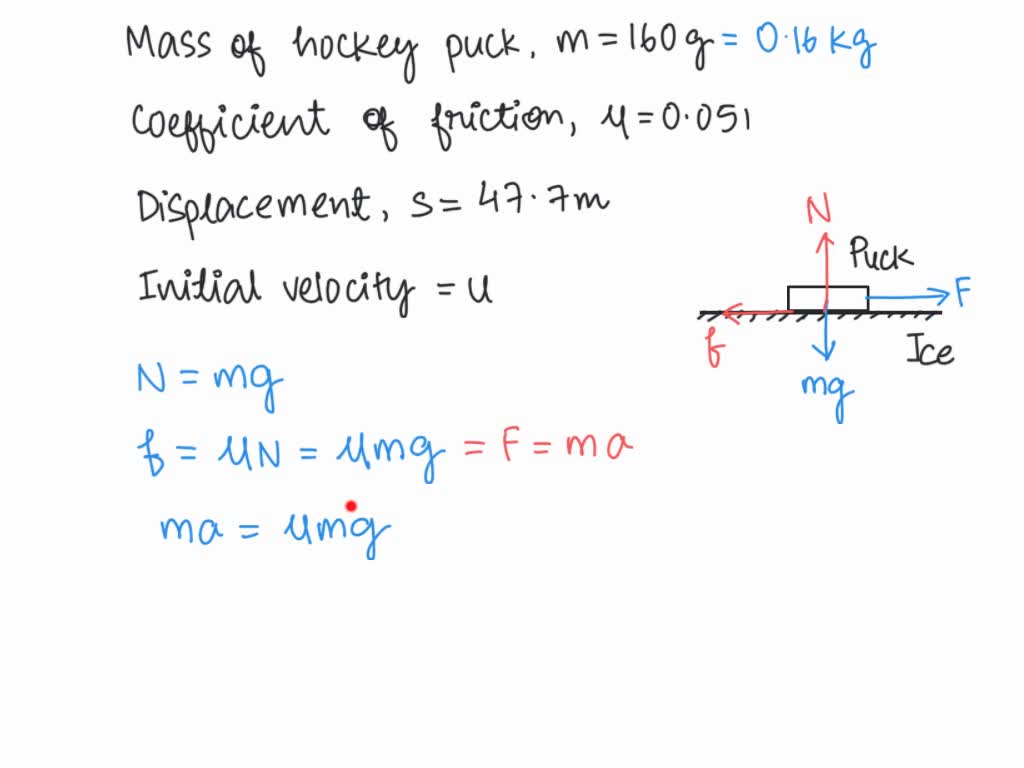 Mass of hockey puck, m = 160 g = 0.16 kg
Coefficient of friction, μ = 0.051
Displacement, s = 47.7m
Initial velocity = u
N
Puck
F
f
Ice
mg
N = mg
f = μN = μmg = F = ma
ma = μmg